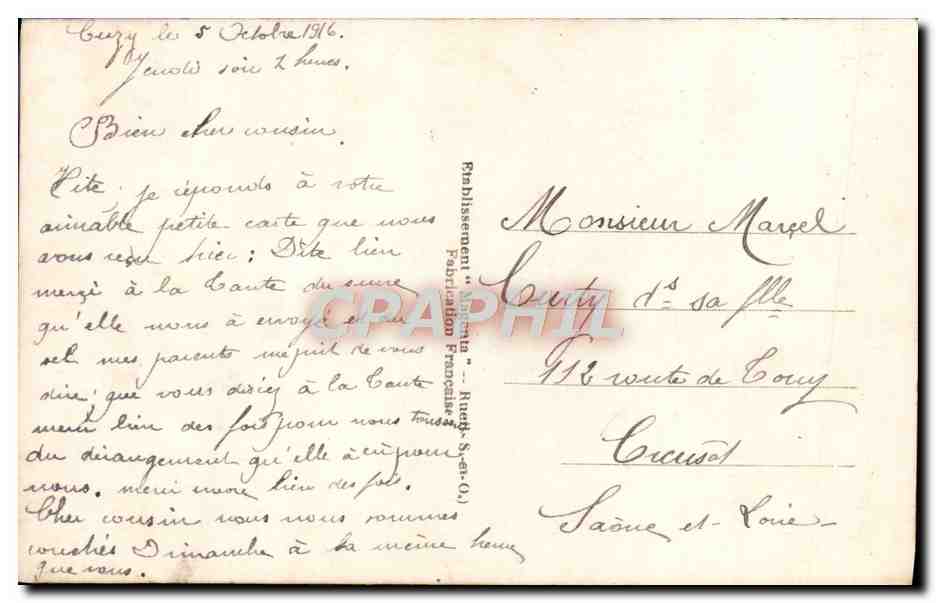 Cuzy le 5 Octobre 1916.
Jeudi soir 2 heures.
Bien cher cousin
Vite je réponds à votre
aimable petite carte que nous
avons reçu hier; Dite bien
merçi à la Tante du sucre
qu'elle nous à envoyé et du
sel mes parents me prit de vous
dire que vous disiez à la Tante
merci bien des fois pour nous tous
du dérangement qu'elle à eu pour
nous. merci encore bien des fois.
Cher cousin nous nous sommes
couchés Dimanche à la même heure
que vous.
Etablissement "Magenta" -- Rueil (S.-et-O.)
Fabrication Française
CPAPHIL
Monsieur Marçel
ds sa flle
112 route de Touy
Creusot
Saône et-Loire